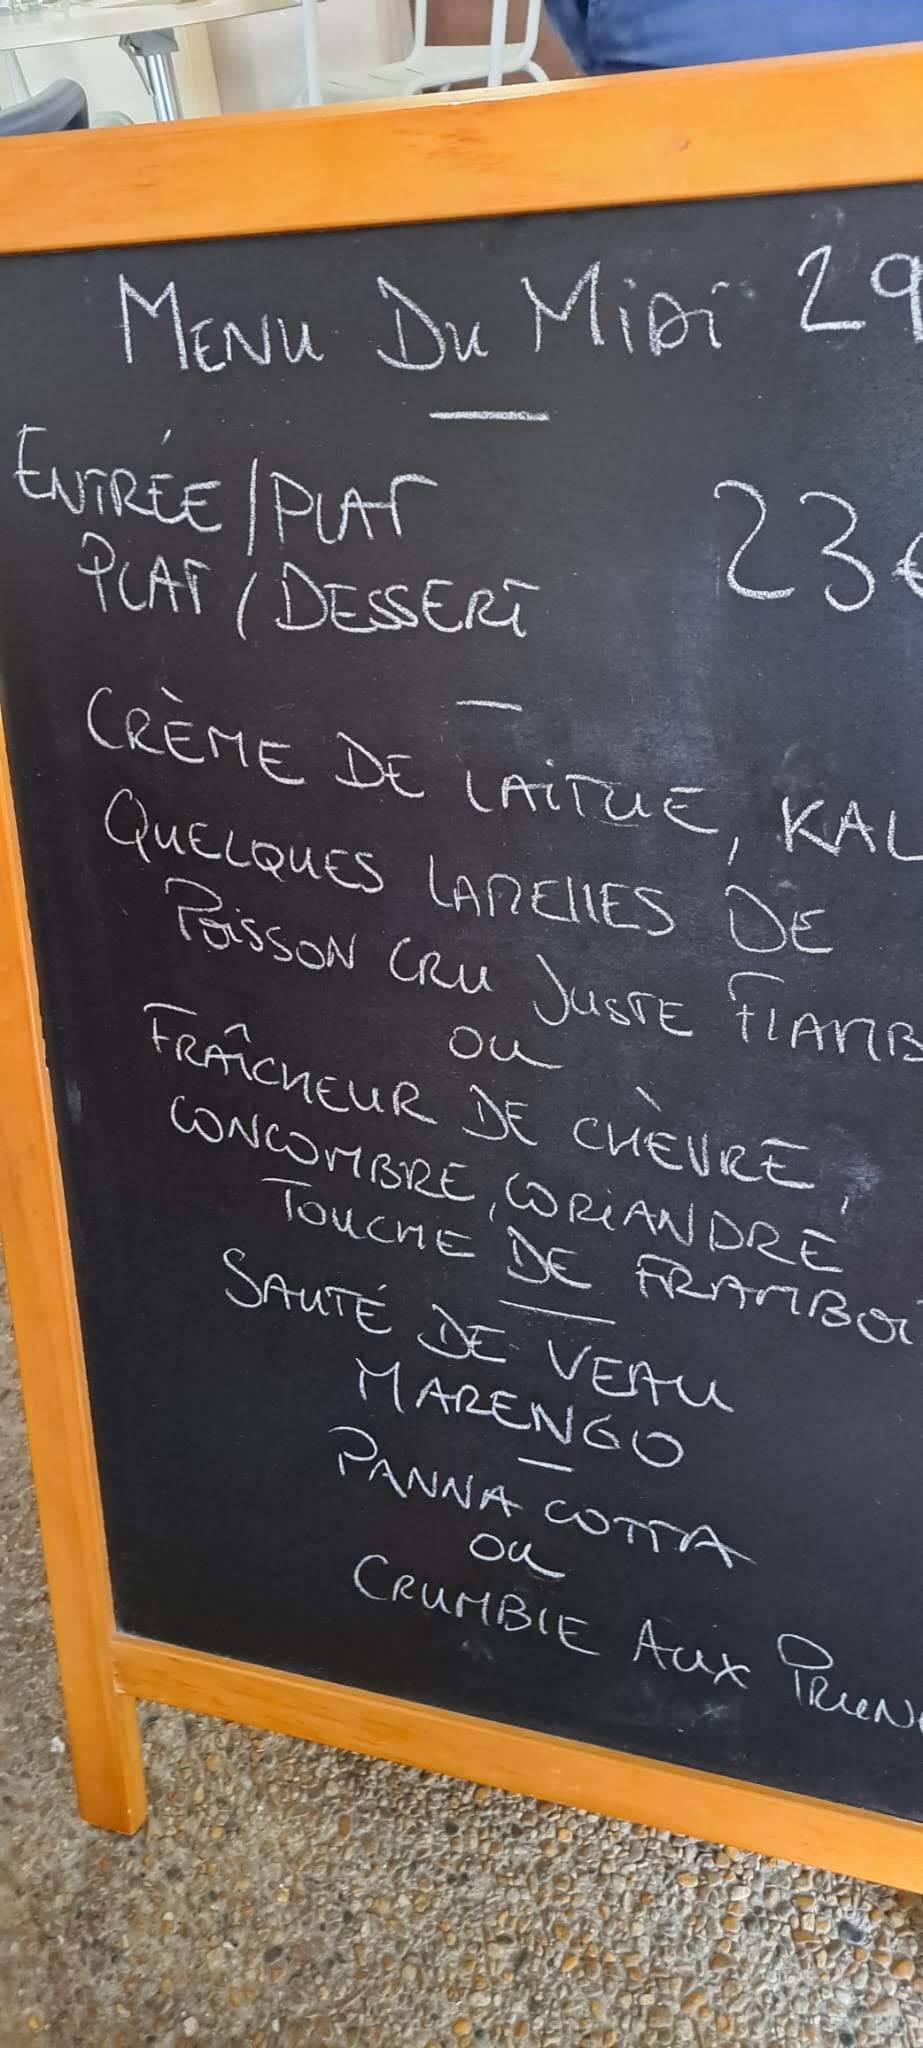 MENU DU MIDI 29
ENTRÉE/PLAT
PLAT/DESSERT 23€
CRÈME DE LAITUE, KAL
QUELQUES LAMELLES DE
POISSON CRU JUSTE FLAMB
OU
FRAÎCHEUR DE CHÈVRE,
CONCOMBRE, CORIANDRE
TOUCHE DE FRAMBOI
SAUTÉ DE VEAU
MARENGO
PANNA COTTA
OU
CRUMBLE AUX PRUN